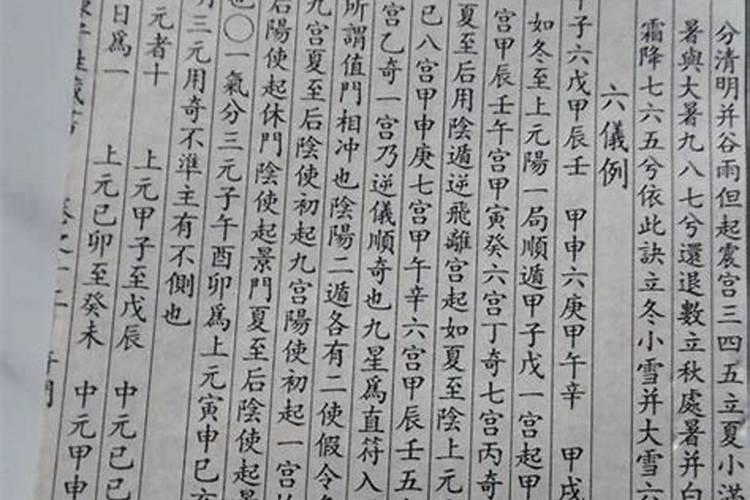 分清明并谷雨但起震宫三四五立夏小满
暑與大暑九八七兮還退數立秋處暑并白
霜降七六五兮依此訣立冬小雪并大雪六
六儀例
子六戊甲辰壬 甲申六庚甲午辛 甲戌
如冬至上元陽一局順遁甲子戊一宫起甲
宫甲辰壬午宫甲寅癸六宫丁奇七宫丙奇
夏至后用陰遁逆飛離宫起如夏至陰上元
已八宫甲申庚七宫甲午辛六宫甲辰壬五
宫乙奇一宫乃逆儀順奇也九星爲直符入
所謂值門相冲也陰陽二遁各有二使假令
九宫夏至后陰使初起九宫陽使初起一宫
后陽使起休門陰使起景門夏至后陰使起景
也〇一氣分三元子午酉卯爲上元寅申巳亥
三元用奇不準主有不側也
元者十 上元甲子至戊辰 中元己巳
日爲一 上元己卯至癸未 中元甲申